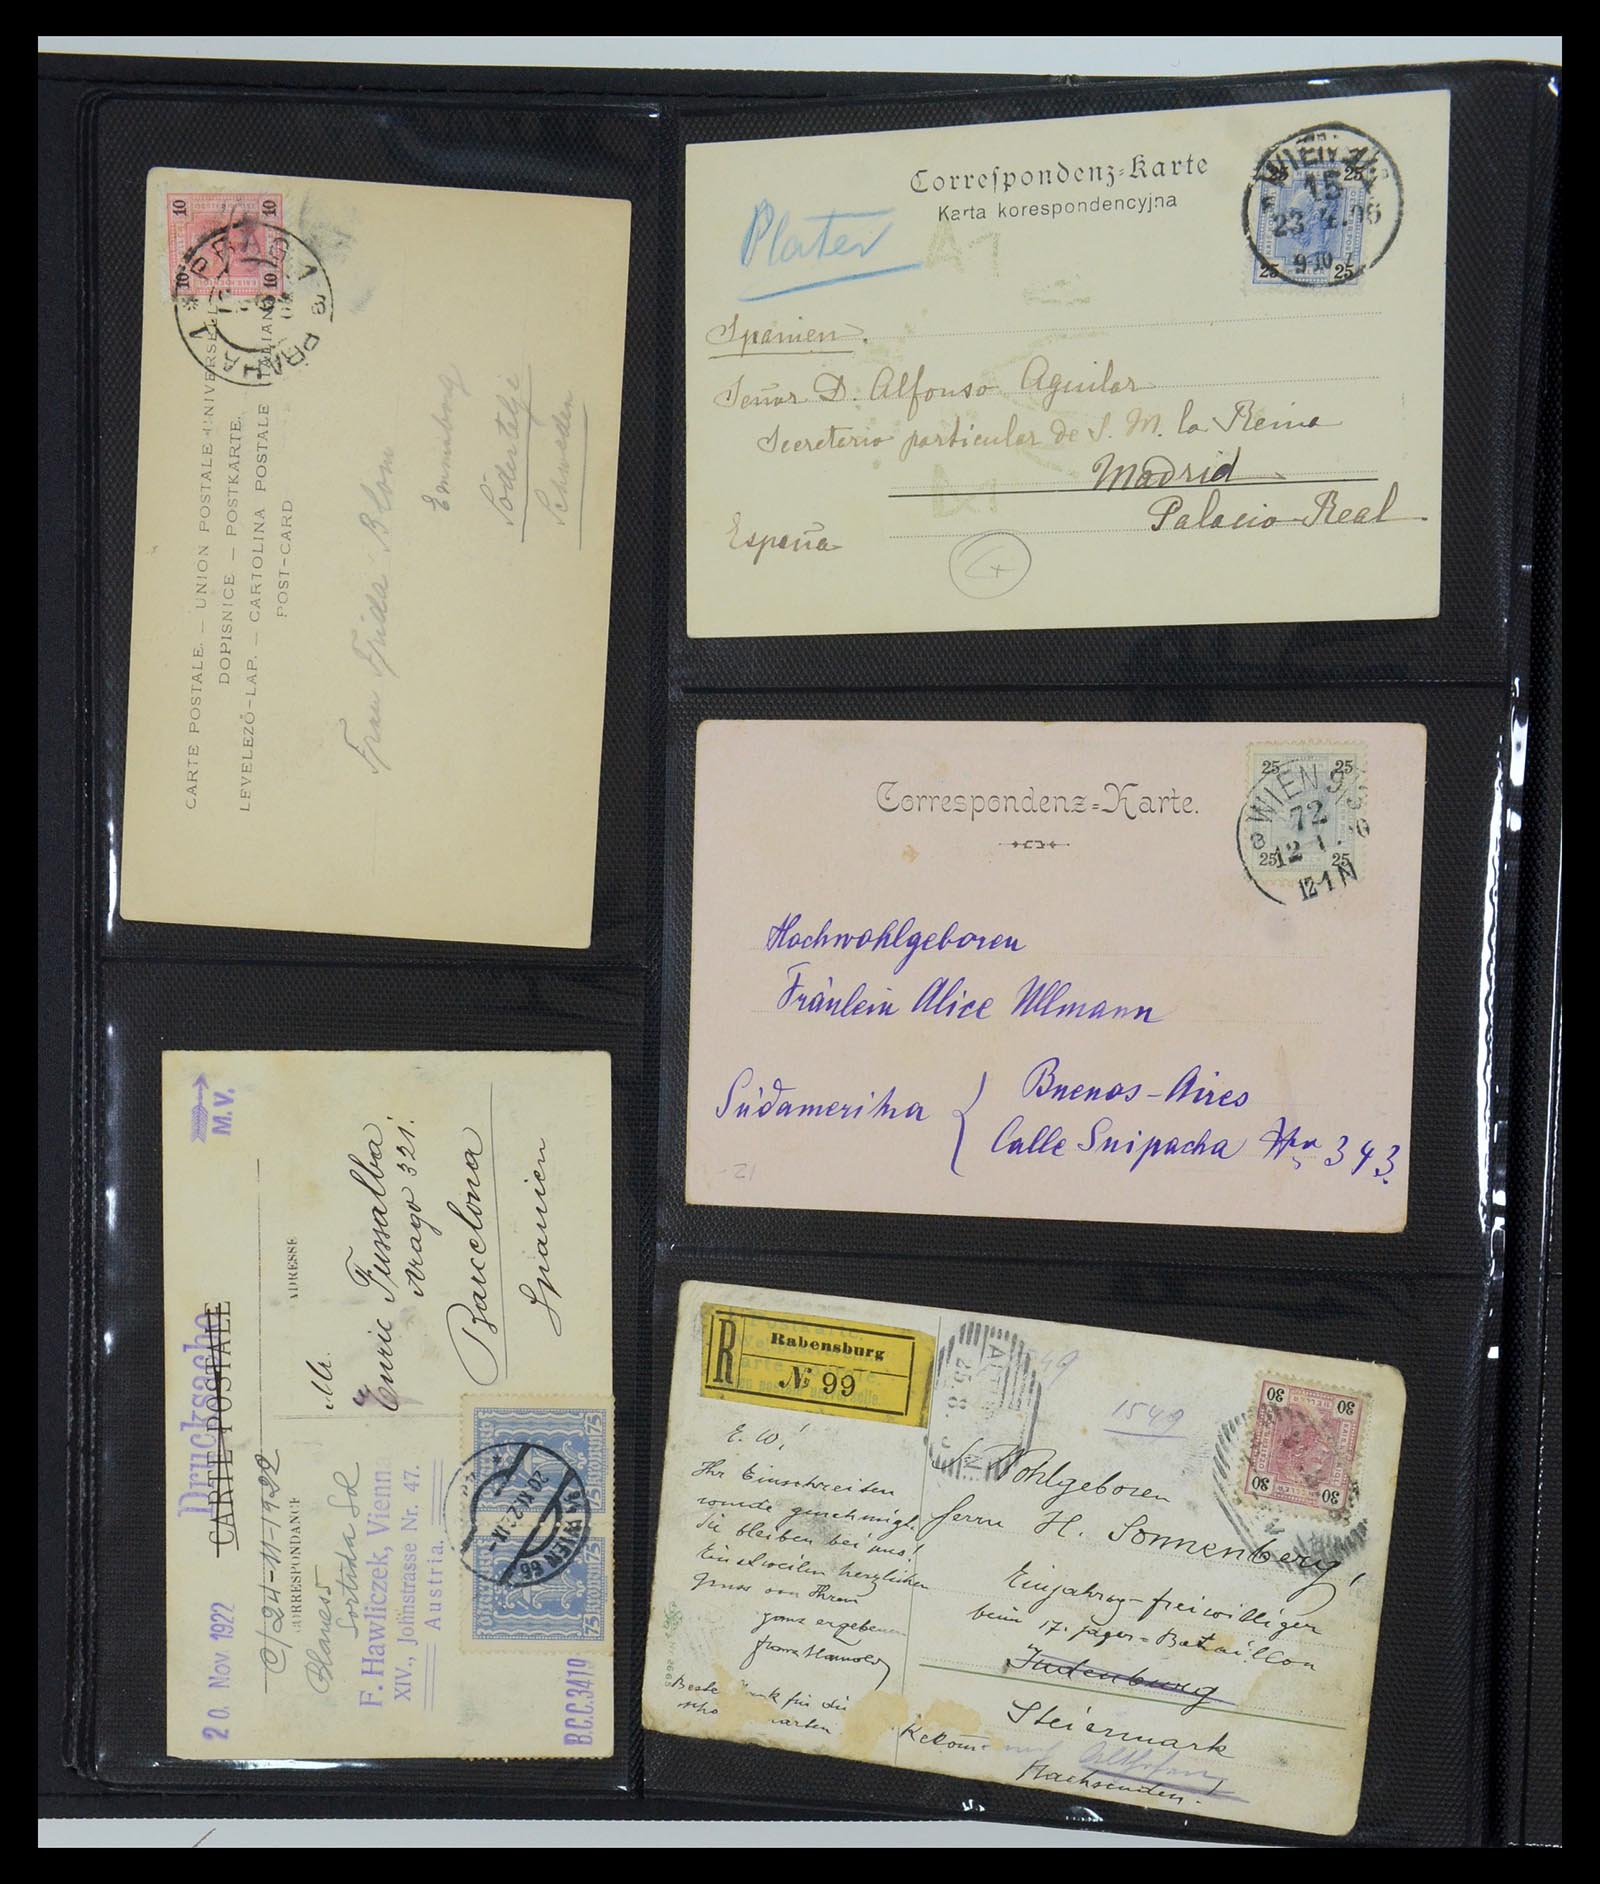 10 10
10 10
CARTE POSTALE. — UNION POSTALE UNIVERSELLE
DOPISNICE — POSTKARTE.
LEVELEZŐ-LAP. — CARTOLINA POSTALE ITALIANA
POST-CARD
Frau Frida Blom
Södertelje
Schweden
Correspondenz-Karte
Karta korespondencyjna
25 25
25 25
WIEN
15
23.4.06
9 10
Spanien.
Señor D. Alfonso Aguilar
Secretario particular de S. M. la Reina
Madrid
Palacio Real
España
Correspondenz-Karte.
25 25
25 25
WIEN 9/3
72
12 1.
12-1N
Hochwohlgeboren
Fräulein Alice Ullmann
Südamerika
Buenos-Aires
Calle Suipacha Nro 343
M.V.
Drucksache
CARTE POSTALE
ADRESSE
CORRESPONDANCE
20. Nov 1922
C/24-11-1922
Mr.
Enric Fussalba
Arago 321.
Barcelona
Spanien
F. Hawliczek, Vienna
XIV., Johnstrasse Nr. 47.
Austria.
B.C.C.3419
75 KRONEN 75
75 KRONEN 75
WIEN 66
R
Rabensburg
№ 99
1549
30 30
30 30
E. W!
Ihr Einschreiten
wurde genehmigt.
Sie bleiben bei uns!
Einstweilen herzlichen
Gruss von Ihrem
ganz ergebenen
Beste
für die
karten
Wohlgeboren
Herrn H. Sonnenberg
Einjährig-freiwilliger
beim 17. Jäger-Bataillon
Judenburg
Steiermark
Nachsenden.